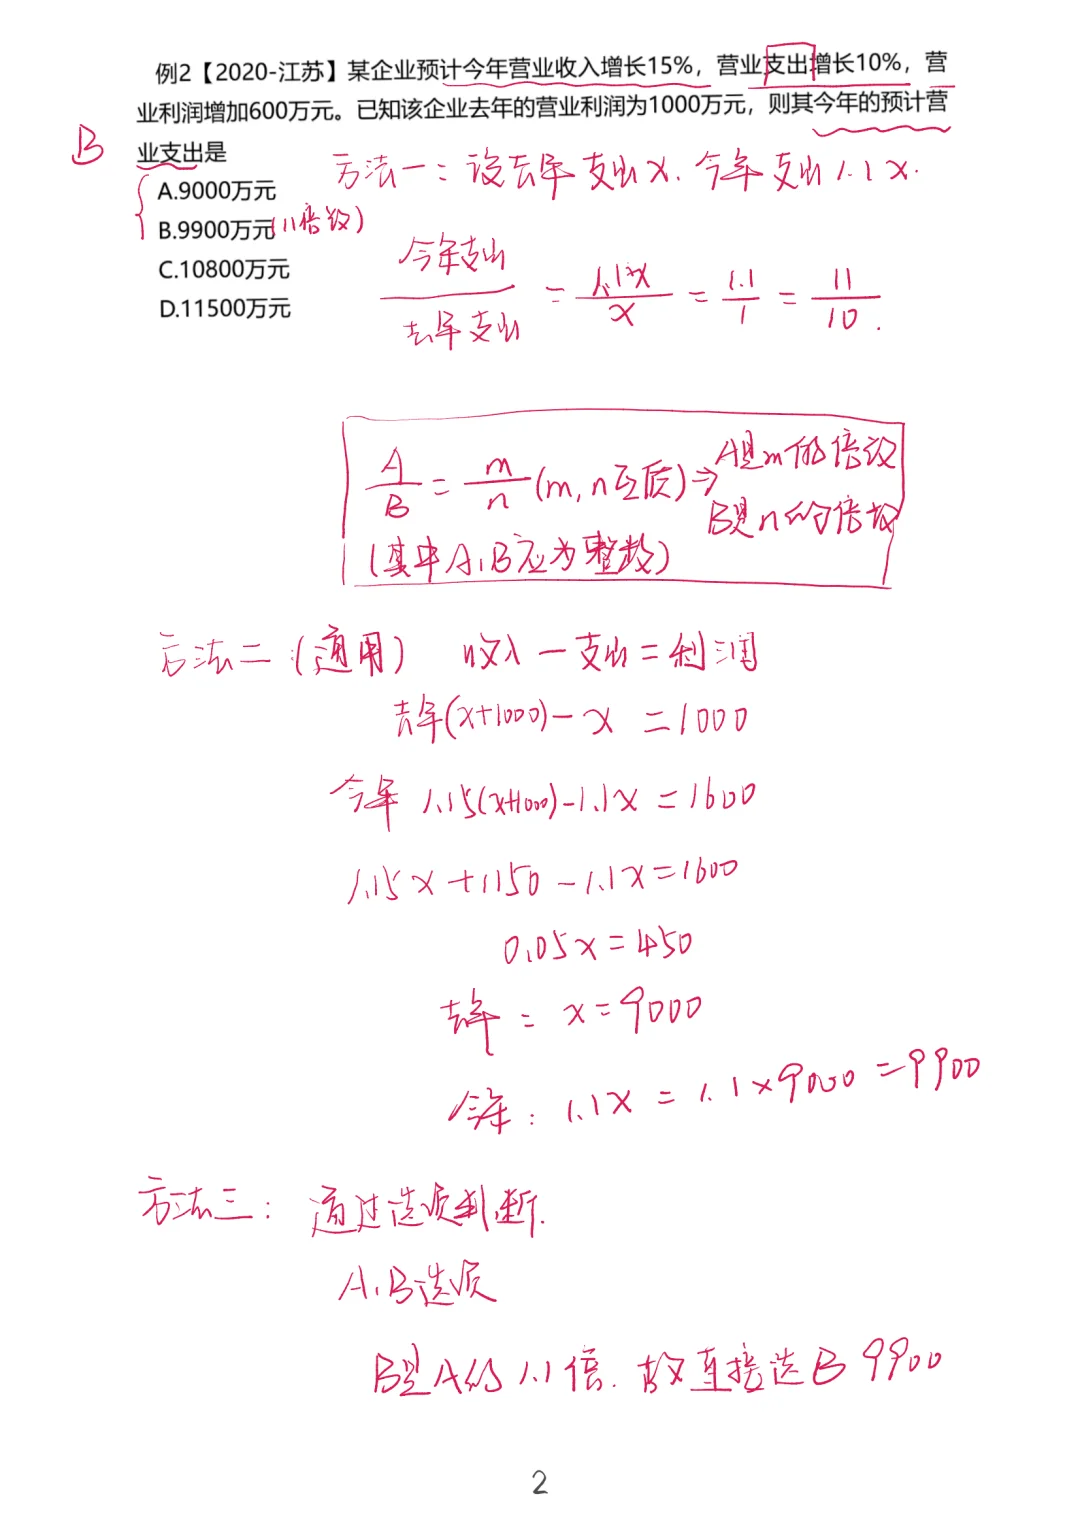 例2【2020-江苏】某企业预计今年营业收入增长15%，营业支出增长10%，营
业利润增加600万元。已知该企业去年的营业利润为1000万元，则其今年的预计营
B
业支出是
方法一：设去年支出x.今年支出1.1x.
A.9000万元
B.9900万元(11倍数)
C.10800万元
D.11500万元
今年支出/去年支出 = 1.1x/x = 1.1/1 = 11/10.
A/B = m/n (m,n互质) ⇒ A是m的倍数
B是n的倍数
(其中A,B应为整数)
方法二(通用) 收入－支出＝利润
去年(x+1000)-x =1000
今年 1.15(x+1000)-1.1x=1600
1.15x+1150-1.1x=1600
0.05x=450
去年: x=9000
今年: 1.1x=1.1×9000=9900
方法三: 通过选项判断.
A.B选项
B是A的1.1倍.故直接选B 9900
2